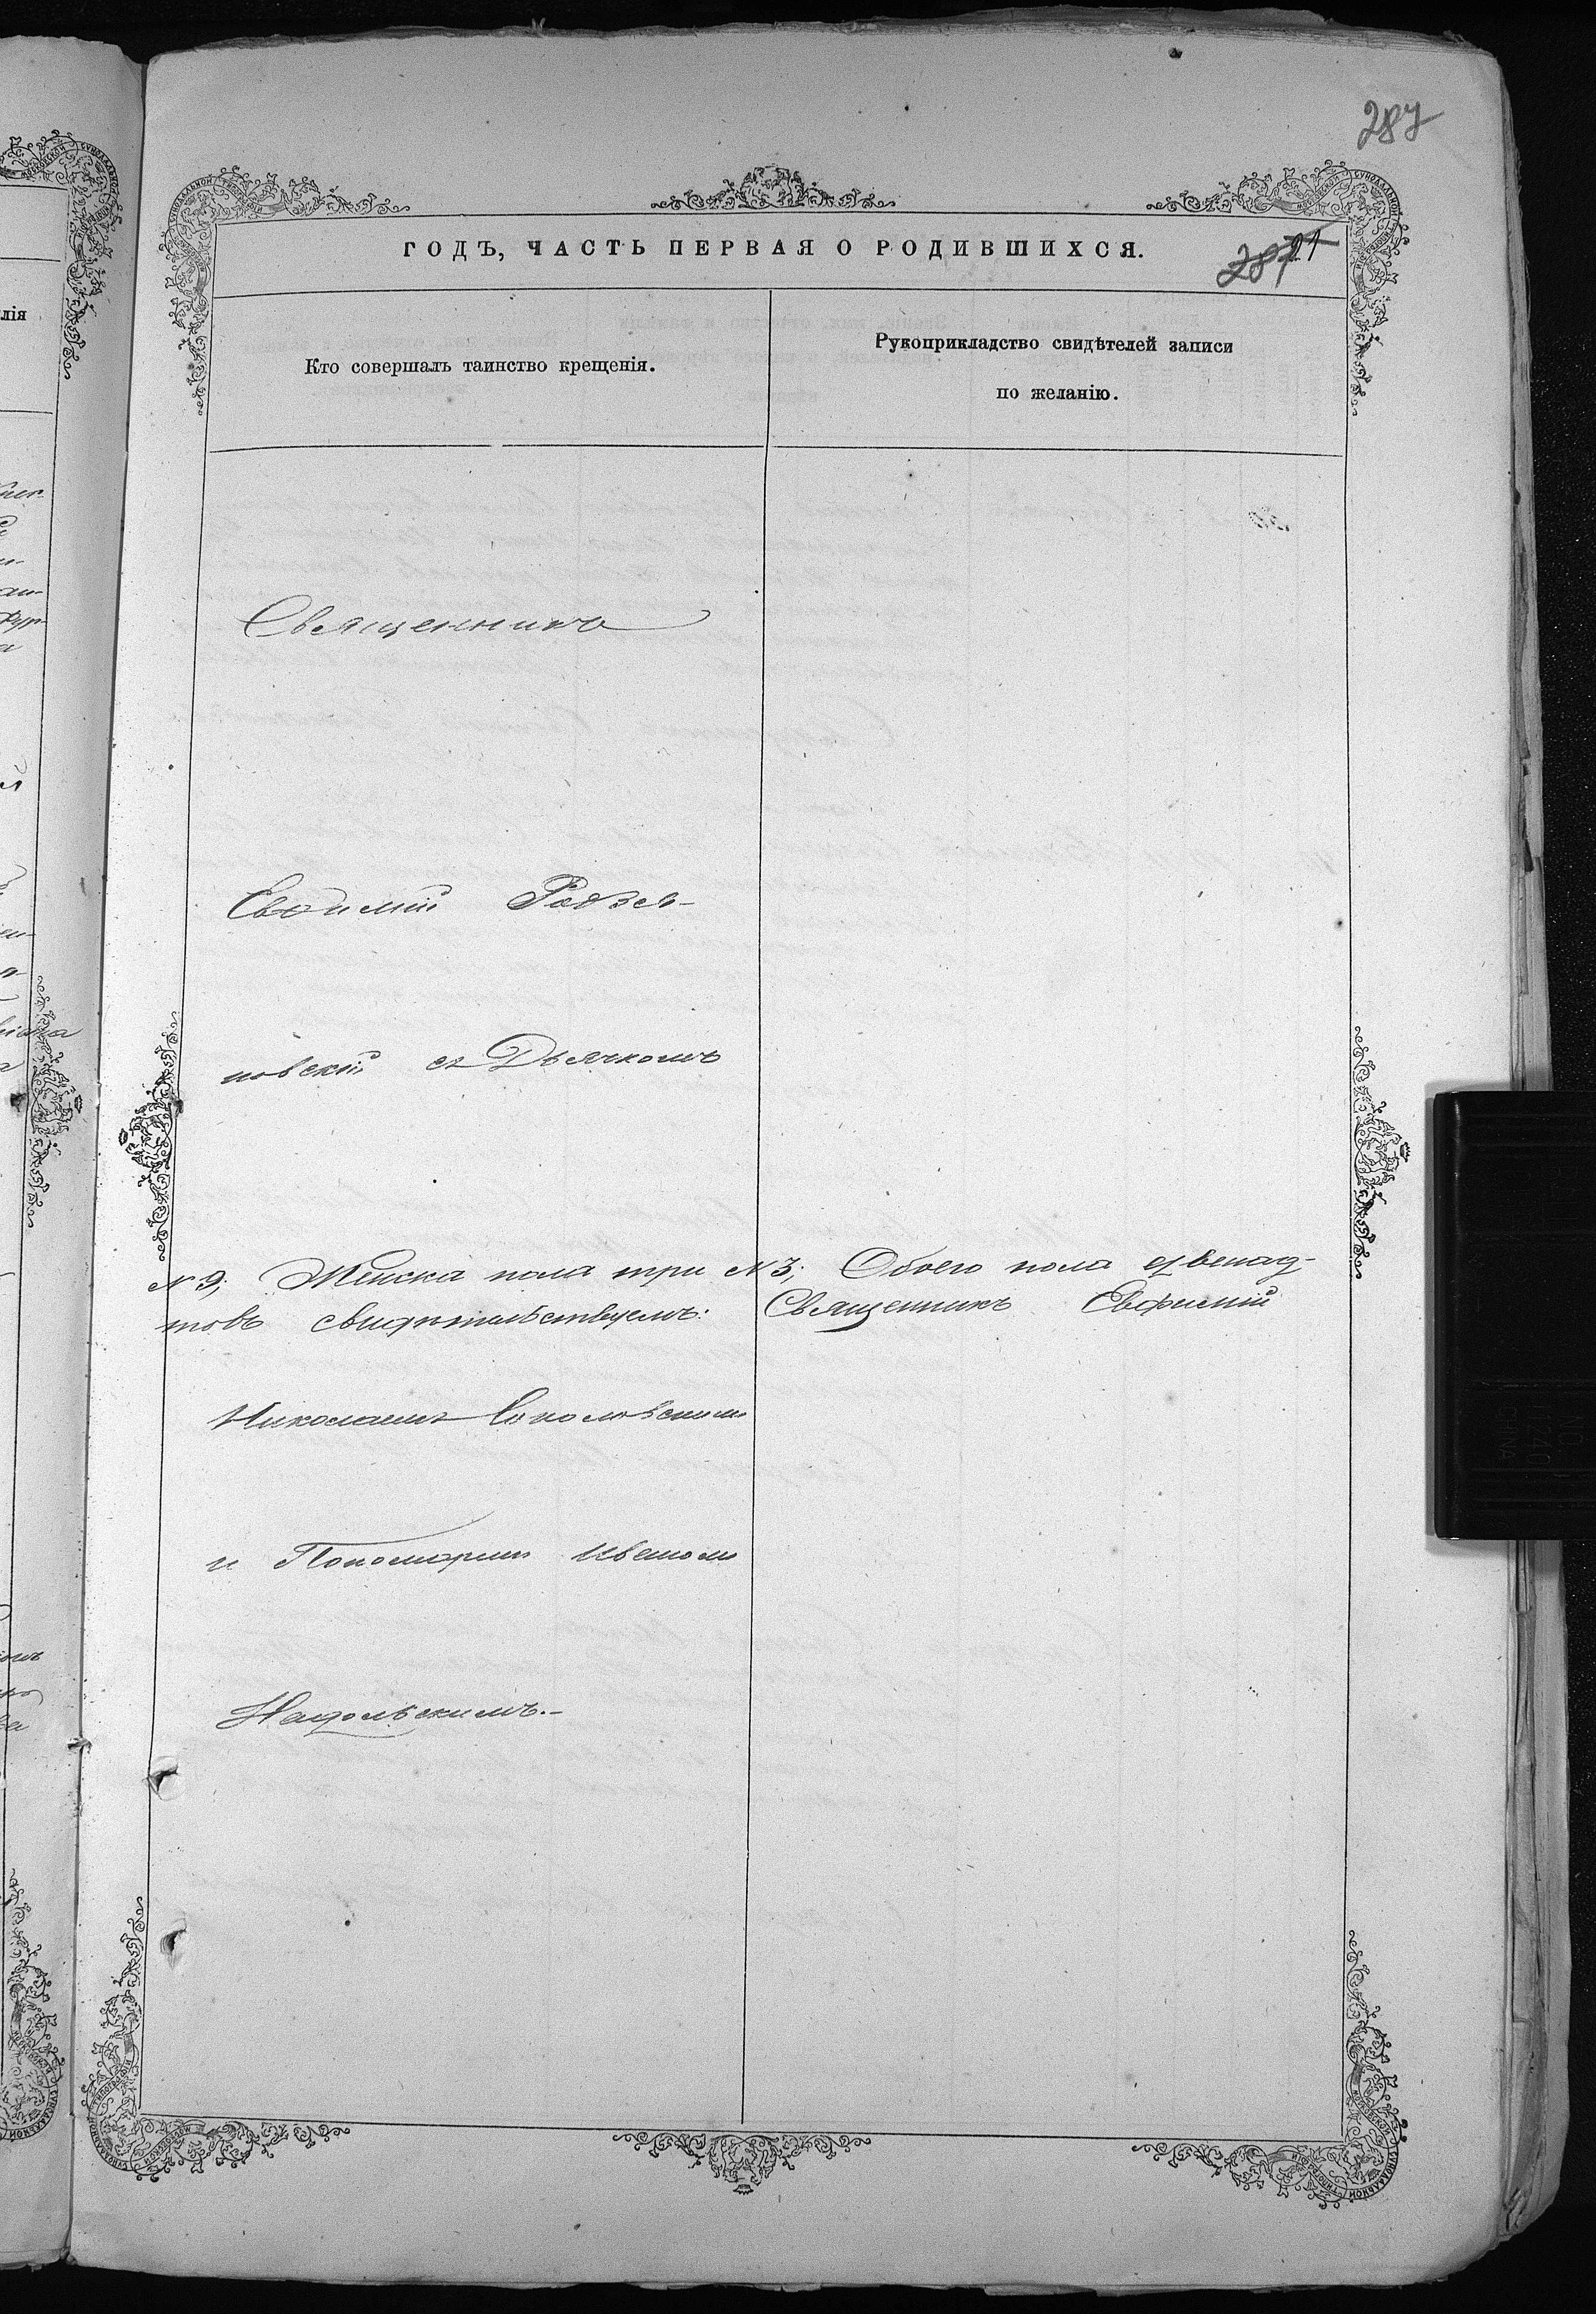 287
ГОДЪ, ЧАСТЬ ПЕРВАЯ О РОДИВШИХСЯ.
287
Кто совершалъ таинство крещенія.
Рукоприкладство свидѣтелей записи
по желанію.
Священникъ
Евѳимій Родзя-
новскій съ Дьячкомъ
№ 9; Женска пола три № 3; Обоего пола двенад-
товъ свидѣтельствуемъ: Священникъ Евфимій
Николаемъ Соколовскимъ
и Пономаремъ Иваномъ
Надольскимъ.-